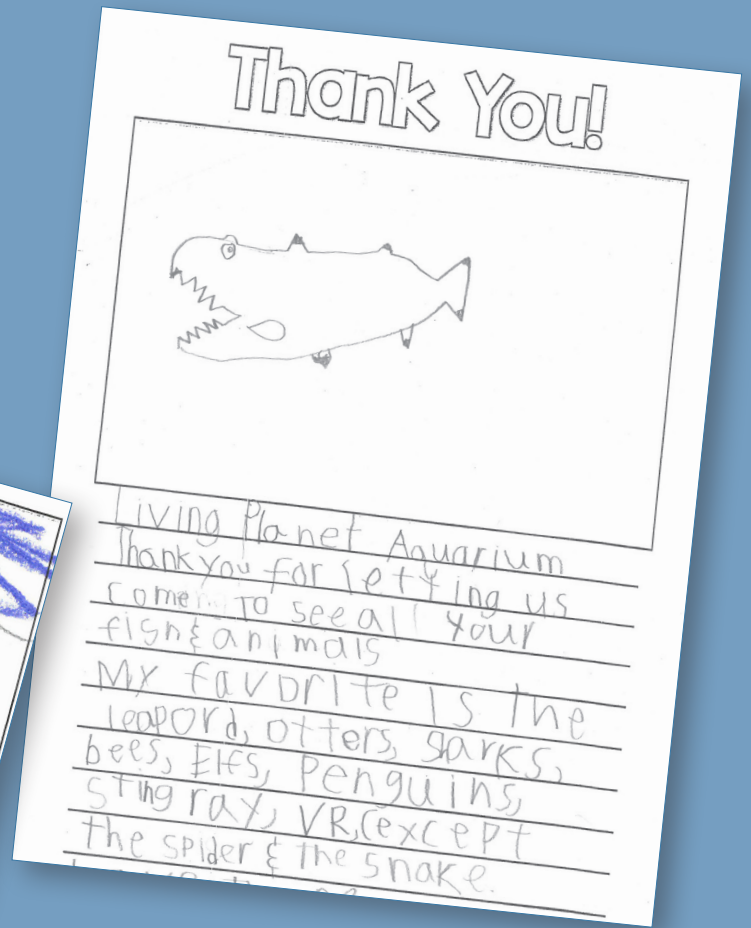 Thank You!
Living Planet Aquarium
Thank you for letting us
come to see all your
fish & animals
My favorite is the
leapord, otters, sarks,
bees, Elfs, Penguins,
Sting ray, VR, (except
the spider & the snake.